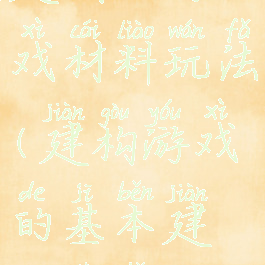 xì cái liào wán fǎ
戏材料玩法
jiàn gòu yóu xì
(建构游戏
de jī běn jiàn
的基本建